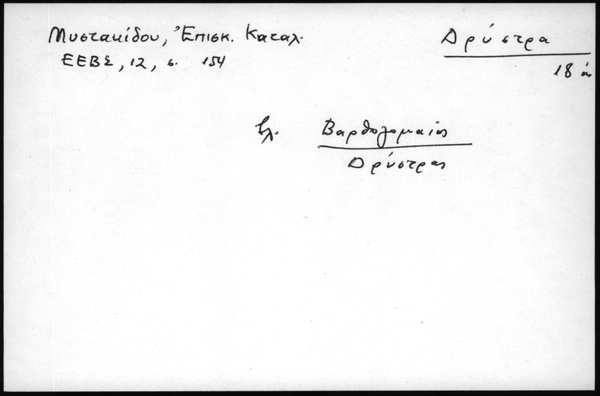 Μυστακίδου, Ἐπισκ. Καταλ.
ΕΕΒΣ, 12, σ. 154
Δρύστρα
18 αἰ
βλ. Βαρθολομαίος
Δρύστρας